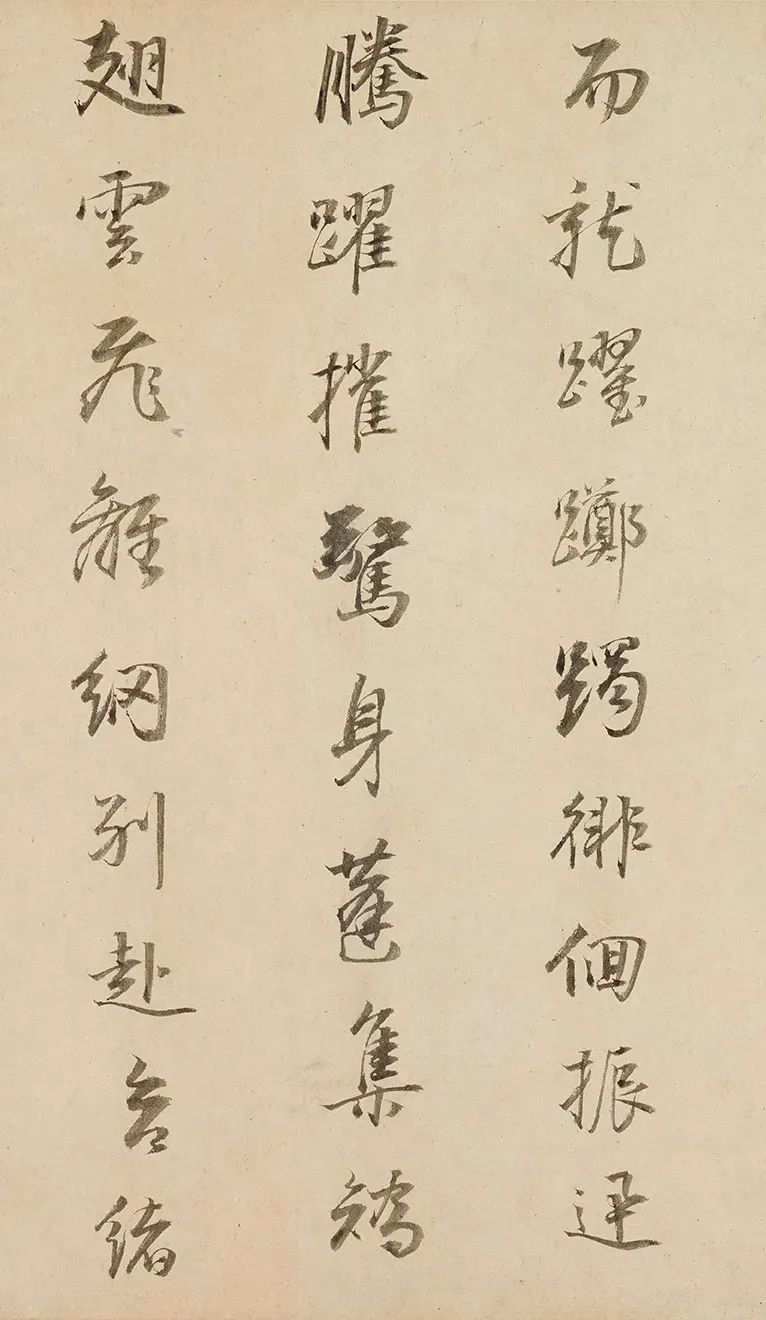 而龍躍躑躅徘佪振迅
騰躍摧驚身蓬集矯
翅雲飛離綱別赴合緒